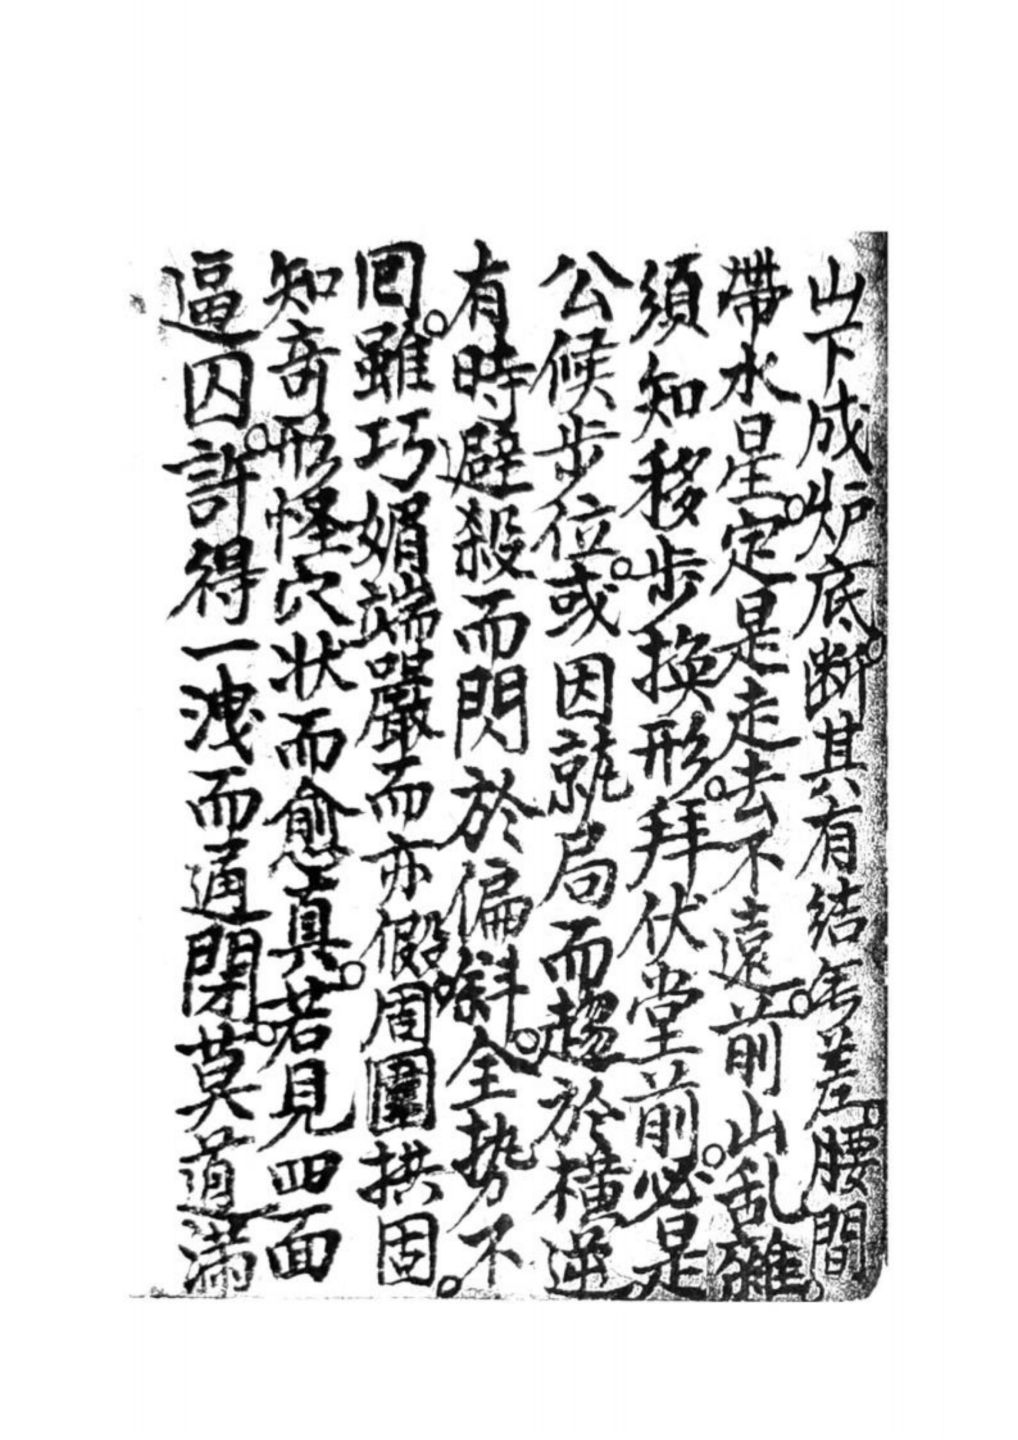 山下成炉底。断其有结年差。腰間
帶水星。定是走去不遠。前山乱雜。
須知移步換形。拜伏堂前。必是
公候步位。或因就局而趨於橫逆。
有時避殺而閃於偏斜。全势不
囘。雖巧媚端嚴而亦假。周圍拱固。
知奇形怪穴状而愈真。若見四面
逼囚。許得一洩而通閉。莫道满